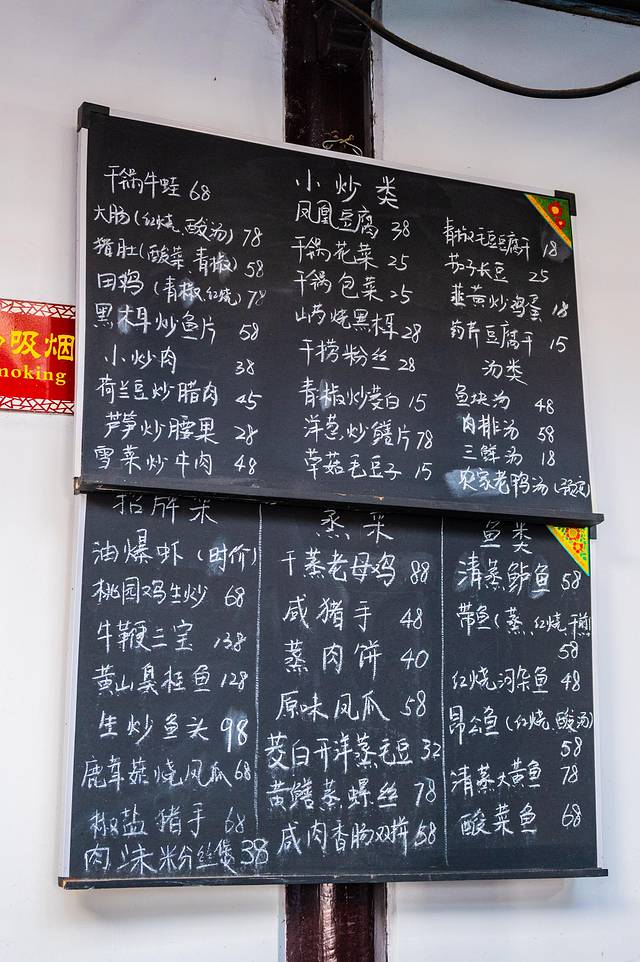 小炒类
干锅牛蛙 68
大肠(红烧、酸汤) 78
猪肚(酸菜 青椒) 58
田鸡(青椒、红烧) 78
黑木耳炒鱼片 58
小炒肉 38
荷兰豆炒腊肉 45
芦笋炒腰果 28
雪菜炒牛肉 48
凤凰豆腐 38
干锅花菜 25
干锅包菜 25
山药烧黑木耳 28
干捞粉丝 28
青椒炒茭白 15
洋葱炒鳝片 78
草菇毛豆子 15
青椒毛豆豆腐干 18
茄子长豆 25
韭黄炒鸡蛋 18
药芹豆腐干 15
汤类
鱼块汤 48
肉排汤 58
三鲜汤 18
农家老鸭汤
招牌菜
油爆虾(时价)
桃园鸡生炒 68
牛鞭三宝 138
黄山臭桂鱼 128
生炒鱼头 98
鹿茸菇烧凤爪 68
椒盐猪手 68
肉沫粉丝煲 38
蒸菜
干蒸老母鸡 88
咸猪手 48
蒸肉饼 40
原味凤爪 58
茭白开洋蒸毛豆 32
黄鳝蒸螺丝 78
咸肉香肠双拼 58
鱼类
清蒸鲈鱼 58
带鱼(蒸、红烧、干煎
58
红烧河杂鱼 48
昂公鱼(红烧、酸汤)
58
清蒸大黄鱼 78
酸菜鱼 68
吸烟
moking